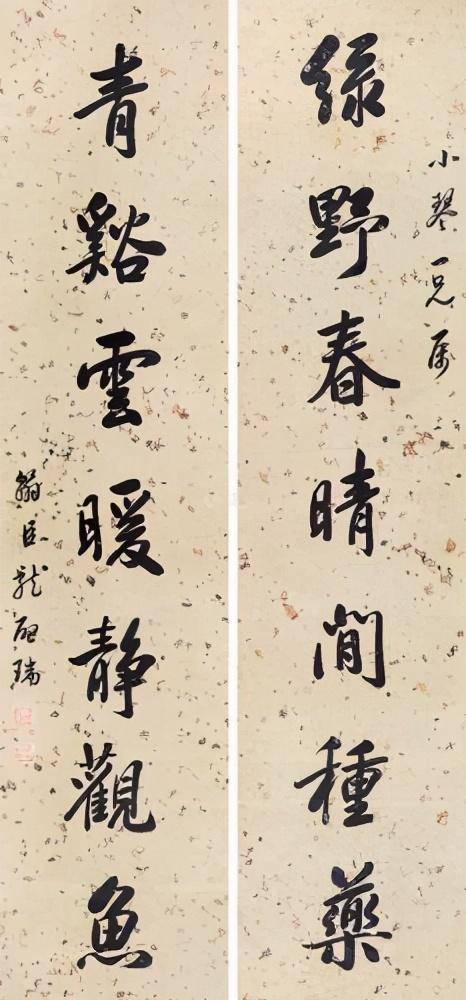 小琴一兄属
绿野春晴閒種藥
青谿雲暖靜觀魚
翰臣龍啟瑞